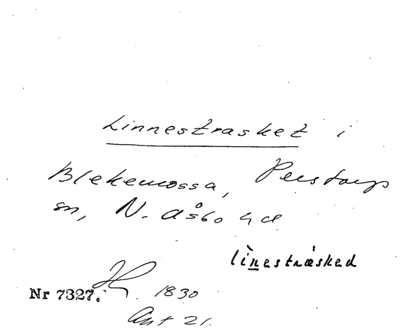 Linnestrasket i
Blekemossa, Perstorps
sn, N. Åsbo hd
lìnestràsked
Nr 7327. 1830
Ant 21.